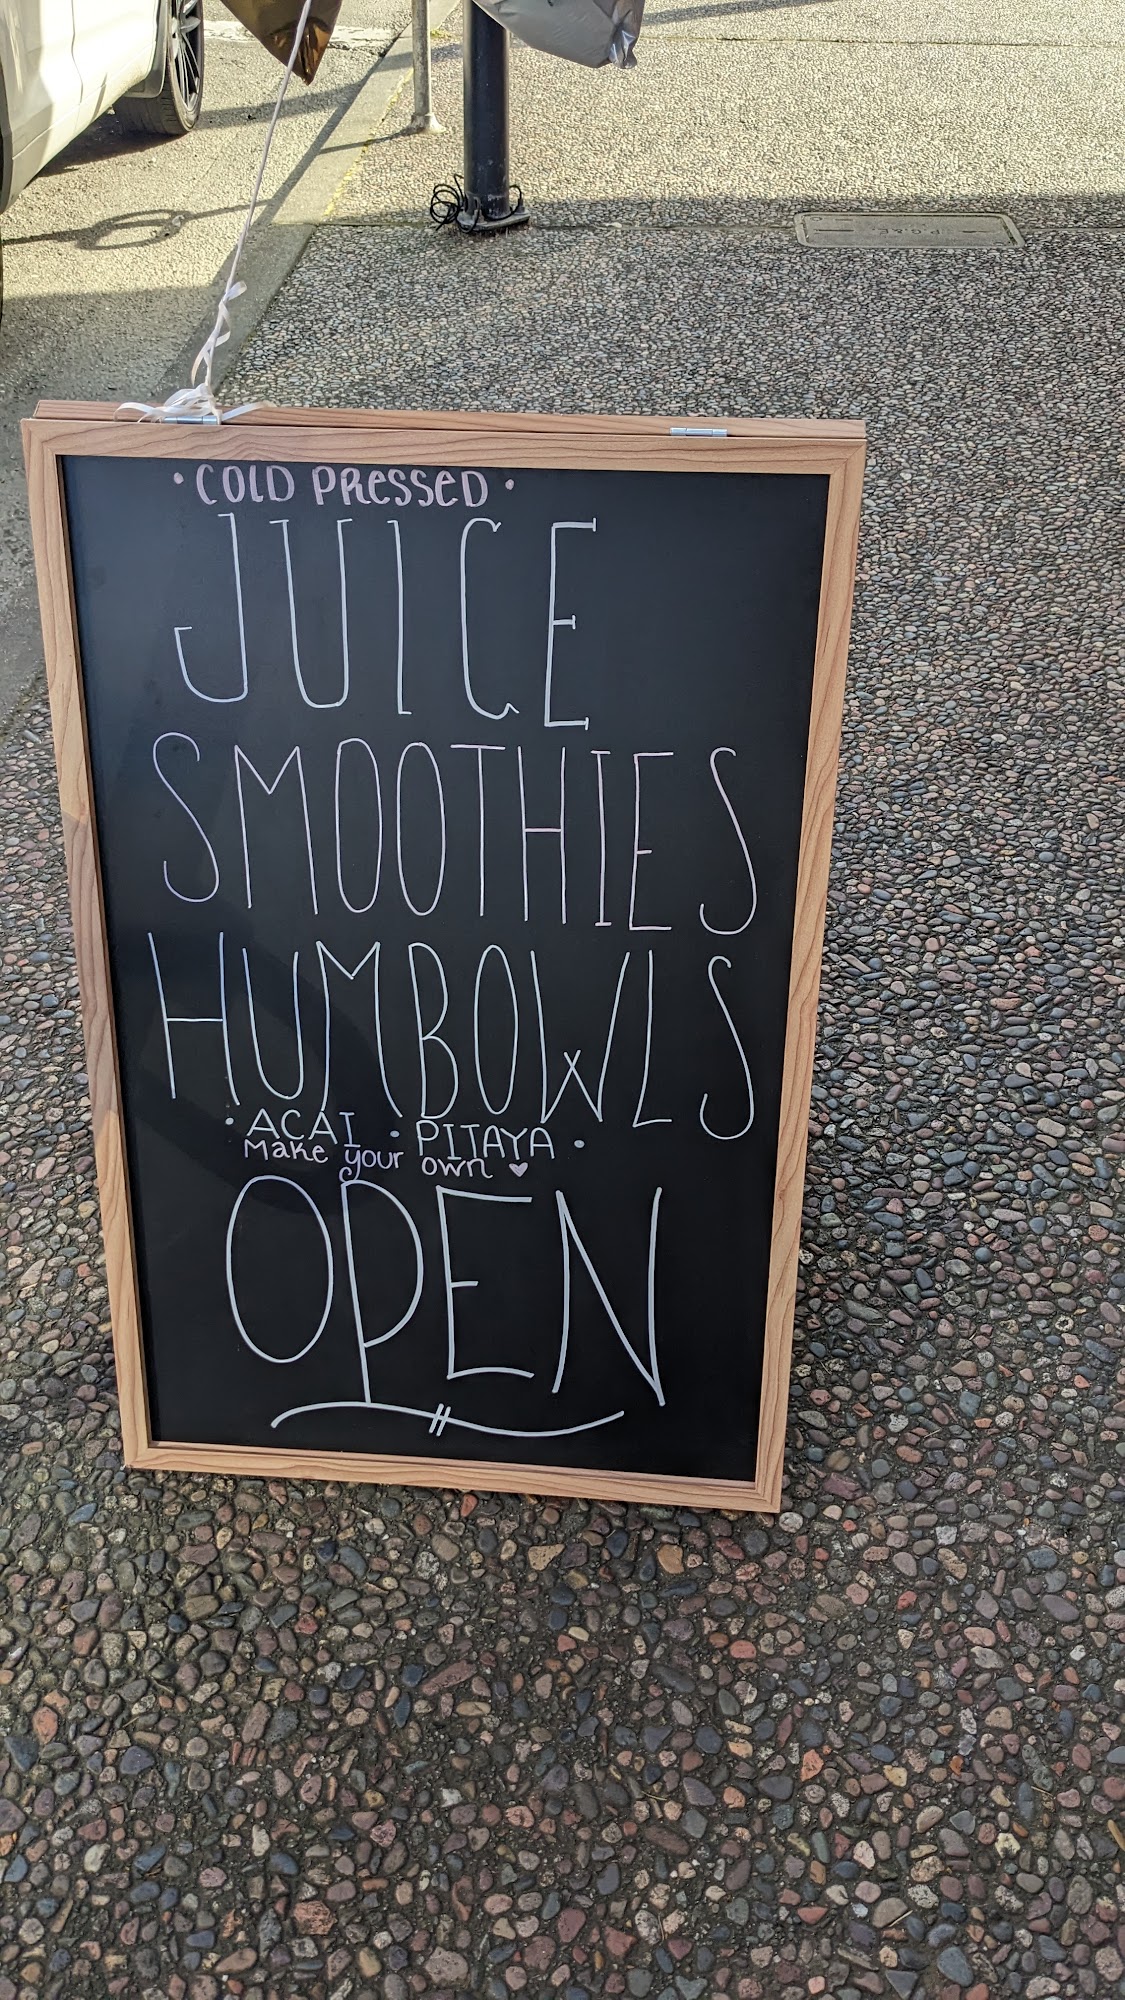 P.G.&E.
• COLD PRESSED •
JUICE
SMOOTHIES
HUMBOWLS
• ACAI • PITAYA •
Make your own ♥
OPEN